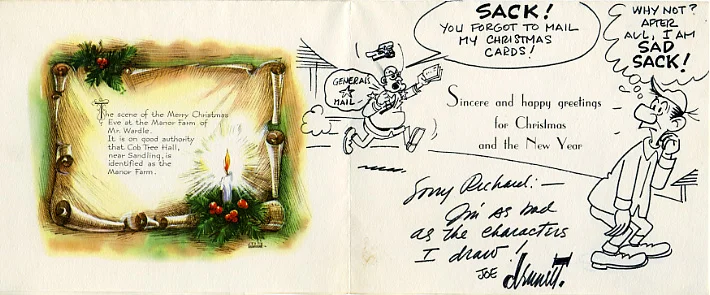 The scene of the Merry Christmas
Eve at the Manor Farm of
Mr. Wardle.
It is on good authority
that Cob Tree Hall,
near Sandling, is
identified as the
Manor Farm.
SACK!
YOU FORGOT TO MAIL
MY CHRISTMAS
CARDS!
GENERAL'S
MAIL
WHY NOT?
AFTER
ALL, I AM
SAD
SACK!
Sincere and happy greetings
for Christmas
and the New Year
Sorry Richard:—
I'm as bad
as the characters
I draw!
JOE